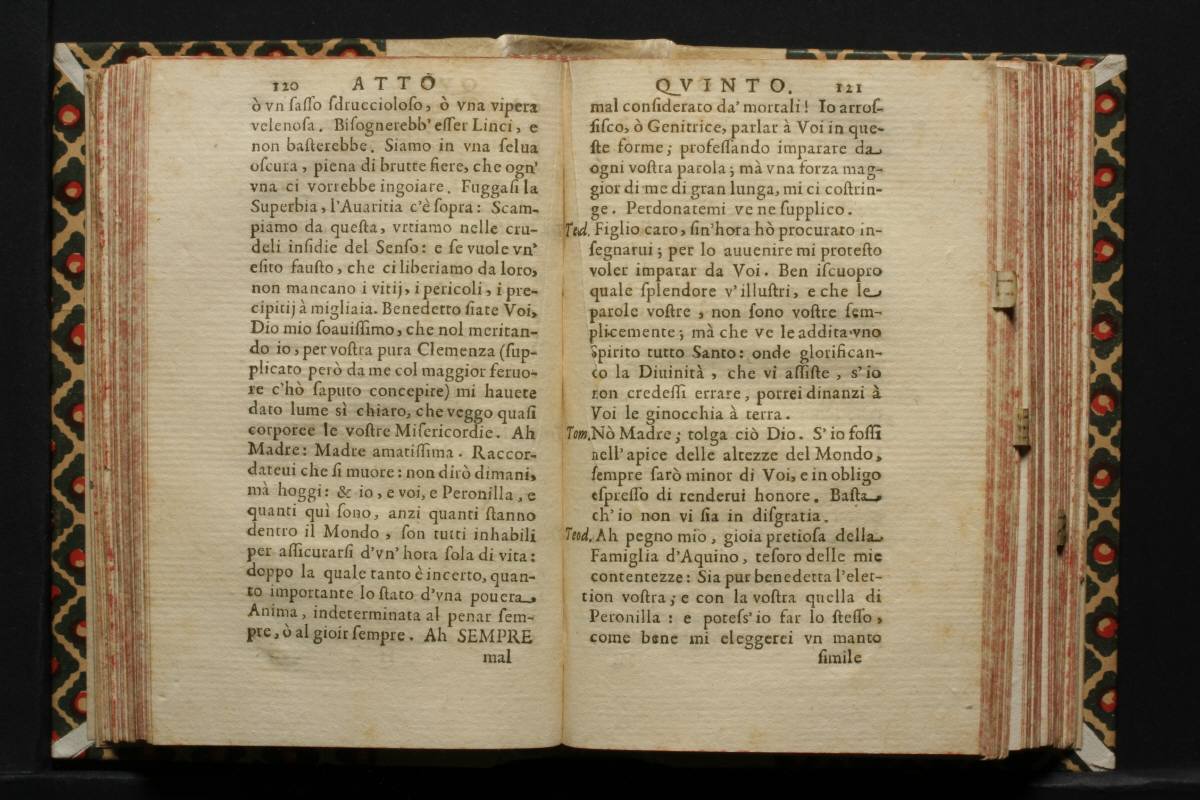 120 ATTO
ò vn ſaſſo ſdruccioloſo, ò vna vipera
velenoſa. Biſognerebb' eſſer Linci, e
non baſterebbe. Siamo in vna ſelua
oſcura, piena di brutte fiere, che ogn'
vna ci vorrebbe ingoiare. Fuggaſi la
Superbia, l'Auaritia c'è ſopra: Scam-
piamo da queſta, vrtiamo nelle cru-
deli inſidie del Senſo: e ſe vuole vn'
eſito fauſto, che ci liberiamo da loro,
non mancano i vitij, i pericoli, i pre-
cipitij à migliaia. Benedetto ſiate Voi,
Dio mio ſoauiſſimo, che nol meritan-
do io, per voſtra pura Clemenza (ſup-
plicato però da me col maggior feruo-
re c'hò ſaputo concepire) mi hauete
dato lume sì chiaro, che veggo quaſi
corporee le voſtre Miſericordie. Ah
Madre: Madre amatiſſima. Raccor-
dateui che ſi muore: non dirò dimani,
mà hoggi: & io, e voi, e Peronilla, e
quanti quì ſono, anzi quanti ſtanno
dentro il Mondo, ſon tutti inhabili
per aſſicurarſi d'vn' hora ſola di vita:
doppo la quale tanto è incerto, quan-
to importante lo ſtato d'vna pouera
Anima, indeterminata al penar ſem-
pre, ò al gioir ſempre. Ah SEMPRE
mal
QVINTO. 121
mal conſiderato da' mortali! Io arroſ-
ſiſco, ò Genitrice, parlar à Voi in que-
ſte forme; profeſſando imparare da
ogni voſtra parola; mà vna forza mag-
gior di me di gran lunga, mi ci coſtrin-
ge. Perdonatemi ve ne ſupplico.
Ted. Figlio caro, ſin'hora hò procurato in-
ſegnarui; per lo auuenire mi proteſto
voler imparar da Voi. Ben iſcuopro
quale ſplendore v'illuſtri, e che le
parole voſtre, non ſono voſtre ſem-
plicemente; mà che ve le addita vno
Spirito tutto Santo: onde glorifican-
do la Diuinità, che vi aſſiſte, s'io
non credeſſi errare, porrei dinanzi à
Voi le ginocchia à terra.
Tom. Nò Madre; tolga ciò Dio. S'io foſſi
nell'apice delle altezze del Mondo,
ſempre ſarò minor di Voi, e in obligo
eſpreſſo di renderui honore. Baſta
ch'io non vi ſia in diſgratia.
Teod. Ah pegno mio, gioia pretioſa della
Famiglia d'Aquino, teſoro delle mie
contentezze: Sia pur benedetta l'elet-
tion voſtra; e con la voſtra quella di
Peronilla: e poteſs'io far lo ſteſſo,
come bene mi eleggerei vn manto
ſimile